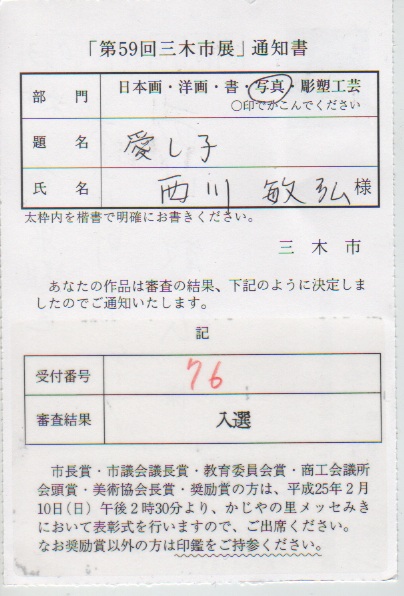 「第59回三木市展」通知書
部門 日本画・洋画・書・写真・彫塑工芸
○印でかこんでください
題名 愛し子
氏名 西川 敏弘 様
太枠内を楷書で明確にお書きください。
三木市
あなたの作品は審査の結果、下記のように決定しま
したのでご通知いたします。
記
受付番号 76
審査結果 入選
市長賞・市議会議長賞・教育委員会賞・商工会議所
会頭賞・美術協会長賞・奨励賞の方は、平成25年2月
10日(日)午後2時30分より、かじやの里メッセみき
において表彰式を行いますので、ご出席ください。
なお奨励賞以外の方は印鑑をご持参ください。